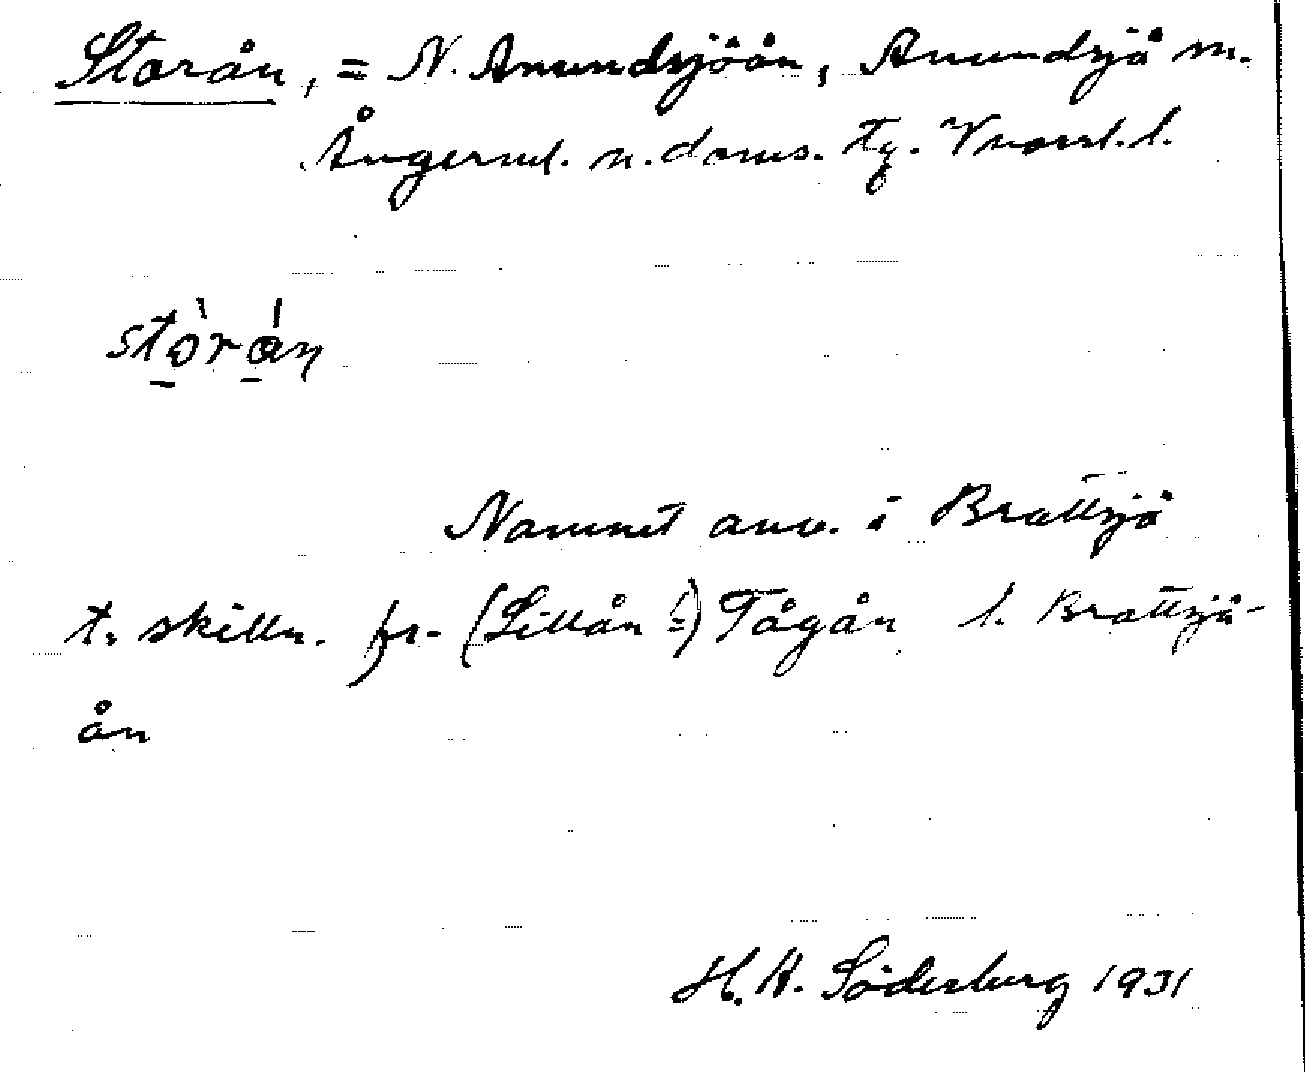 Storån, = N. Anundsjöån, Anundsjö sn.
Ångerml. n. doms. tg. Vnorrl. l.
stòrán
Namnet anv. i Brattsjö
t. skilln. fr. (Lillån =) Tågån l. Brattsjö-
ån
H. H. Söderberg 1931